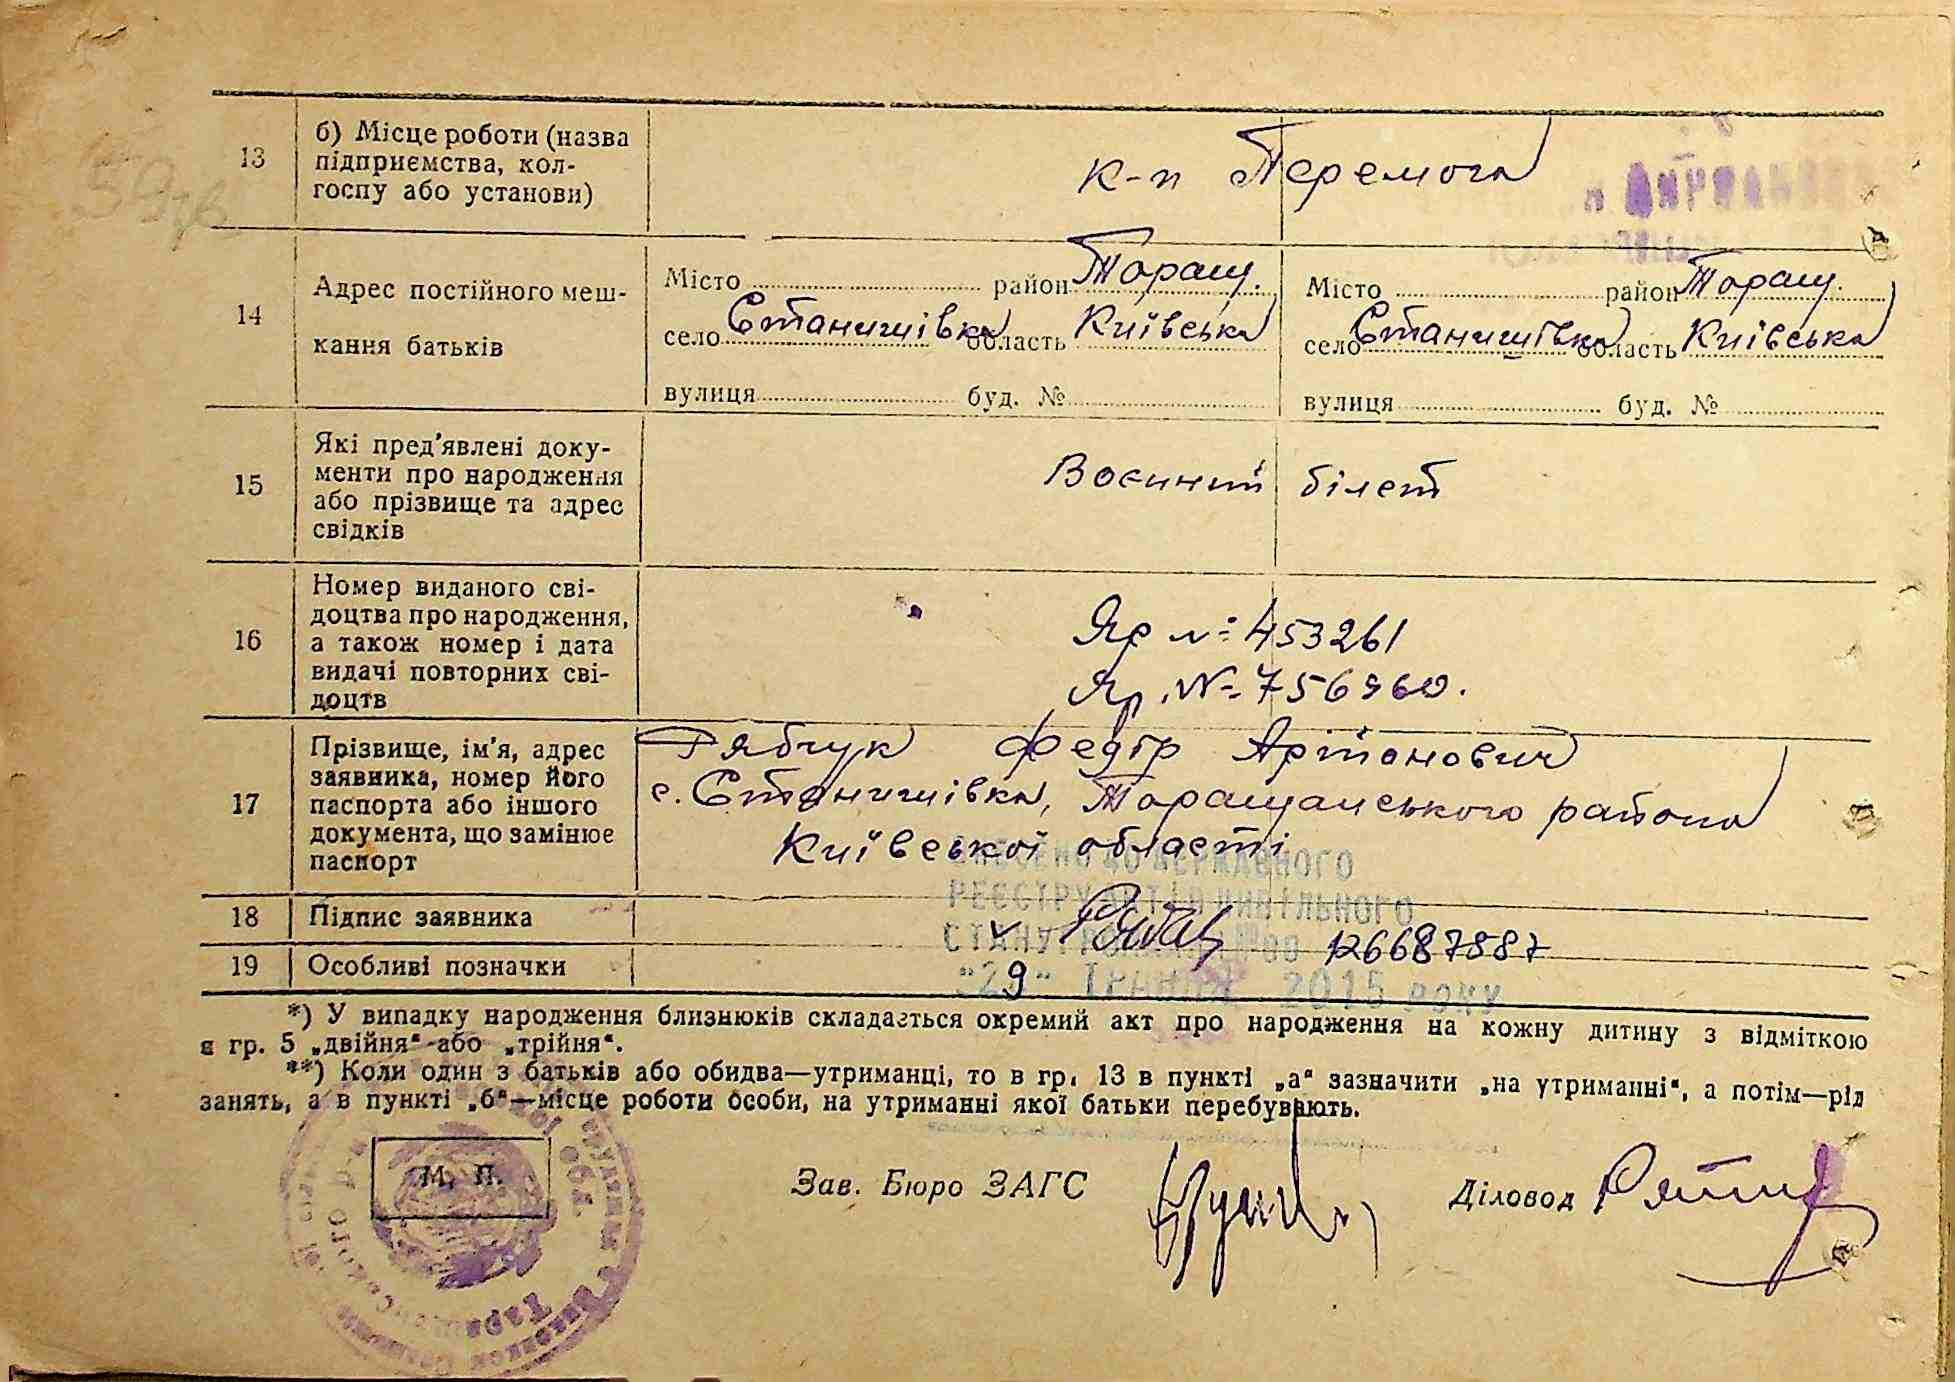 13
б) Місце роботи (назва
підприємства, кол-
госпу або установи)
к-п Перемога
14
Адрес постійного меш-
кання батьків
Місто район Таращ.
село Станишівка область Київська
вулиця буд. №
Місто район Таращ.
село Станишівка область Київська
вулиця буд. №
15
Які пред'явлені доку-
менти про народження
або прізвище та адрес
свідків
Воєнний білет
16
Номер виданого сві-
доцтва про народження,
а також номер і дата
видачі повторних сві-
доцтв
Яр № 453261
Яр. №
17
Прізвище, ім'я, адрес
заявника, номер його
паспорта або іншого
документа, що замінює
паспорт
Рябчук Федір Артонович
с. Станишівка, Таращанського района
Київської області
ВНЕСЕНО ДО ДЕРЖАВНОГО
РЕЄСТРУ АКТІВ ЦИВІЛЬНОГО
СТАНУ ГРОМАДЯН №00 126687887
"29" ТРАВНЯ 2015 РОКУ
18
Підпис заявника
19
Особливі позначки
*) У випадку народження близнюків складається окремий акт про народження на кожну дитину з відміткою
в гр. 5 „двійня" або „трійня".
**) Коли один з батьків або обидва—утриманці, то в гр. 13 в пункті „а" зазначити „на утриманні", а потім—рід
занять, а в пункті „б"—місце роботи особи, на утриманні якої батьки перебувають.
М. П.
Зав. Бюро ЗАГС
Діловод